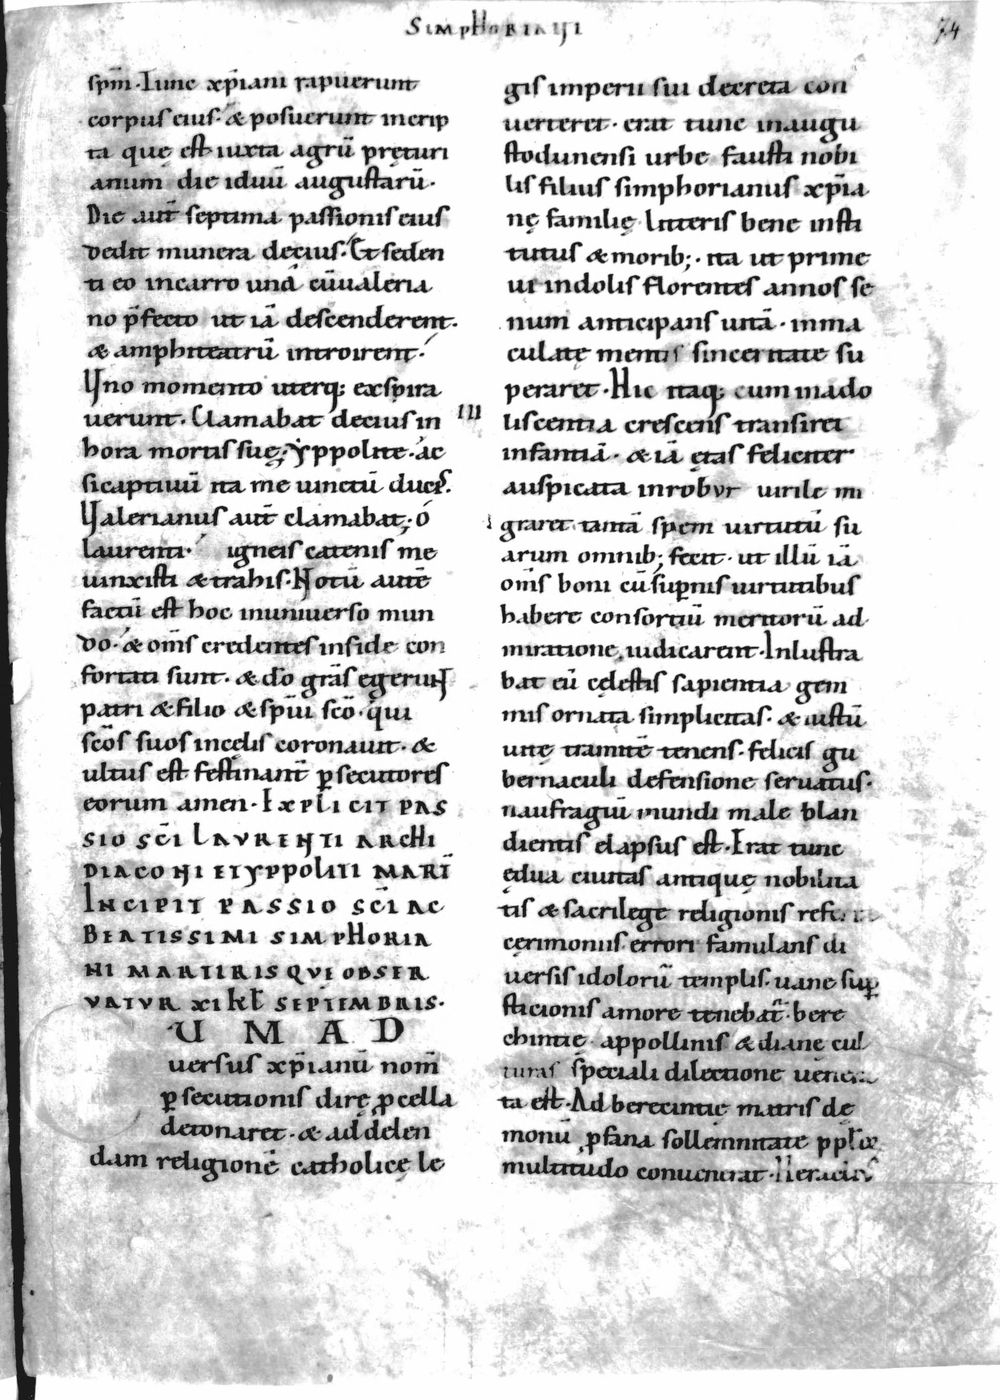 SIMPHORIANI
74
sp̄m. Tunc xp̄iani rapuerunt
corpus eius. & posuerunt in crip
ta quę est iuxta agrū pręturi
anum die iduū augustarū.
Die aut̄ septima passionis eius
dedit munera decius. Et seden
ti eo in carro una cū ualeria
no p̄fecto ut iā descenderent.
& amphiteatrū introirent.
Uno momento uterq; exspira
uerunt. Clamabat decius in
hora mortis suę; Yppolite. ac
si captiuū ita me uinctū ducis.
Ualerianus aut̄ clamabat; o
laurenti. igneis catenis me
uinxisti & trahis. Notū autē
factū est hoc in uniuerso mun
do. & om̄s credentes in fide con
fortati sunt. & dō grās egerunt
patri & filio & sp̄ui sc̄o. qui
sc̄os suos in cęlis coronauit. &
ultus est festinant̄ ꝑsecutores
eorum amen. EXPLICIT PAS
SIO SC̄I LAVRENTI ARCHI
DIACONI ET YPPOLITI MART̄
INCIPIT PASSIO SC̄I AC
BEATISSIMI SIMPHORIA
NI MARTIRIS QVI OBSER
VATVR XI KL̄ SEPTEMBRIS.
UM AD
uersus xp̄ianū nom̄
ꝑsecutionis dirę ꝓcella
detonaret. & ad delen
dam religionē catholicę le
gis imperii sui decreta con
uerteret. erat tunc in augu
stodunensi urbe fausti nobi
lis filius simphorianus xp̄ia
nę familię litteris bene insti
tutus & morib;. ita ut prime
ui indolis florentes annos se
num anticipans uitā. inma
culatę mentis sinceritate su
peraret. Hic itaq; cum in ado
III
liscentia crescens transiret
infantiā. & iā ętas feliciter
auspicata in robur uirile mi
graret tantā spem uirtutū su
arum omnib; fecit. ut illū iā
om̄s boni cū suꝑnis uirtutibus
habere consortiū meritorū ad
miratione iudicarent. Inlustra
bat eū cęlestis sapientia gem
mis ornata simplicitas. & iustū
uitę tramitē tenens. felicis gu
bernaculi defensione seruatus.
naufragiū mundi male blan
dientis elapsus est. Erat tunc
ędua ciuitas antiquę nobilita
tis & sacrilege religionis
cerimoniis errori famulans di
uersis idolorū templis. uane suꝑ
sticionis amore tenebat̄. bere
chintię appollinis & diane cul
turas speciali dilectione
ta est. Ad berecintię matris dę
monū ꝓfana sollemnitate
multitudo conuenerat.